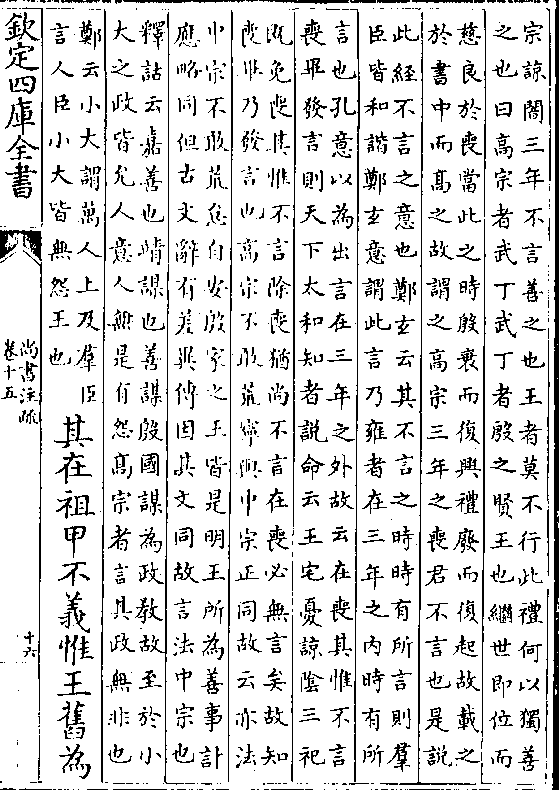 宗諒闇三年不言善之也王者莫不行此禮何以獨善
之也曰髙宗者武丁武丁者殷之賢王也繼世即位而
慈良於喪當此之時殷衰而復興禮廢而復起故載之
於書中而髙之故謂之髙宗三年之喪君不言也是説
此經不言之意也鄭玄云其不言之時時有所言則羣
臣皆和諧鄭玄意謂此言乃雍者在三年之内時有所
言也孔意以為出言在三年之外故云在喪其惟不言
喪畢發言則天下太和知者説命云王宅憂諒陰三祀
既免喪其惟不言除喪猶尚不言在喪必無言矣故知
喪畢乃發言也髙宗不敢荒寧與中宗正同故云亦法
中宗不敢荒怠自安殷家之王皆是明王所為善事計
應略同但古文辭有差異傳因其文同故言法中宗也
釋詁云嘉善也靖謀也善謀殷國謀為政教故至於小
大之政皆允人意人無是有怨髙宗者言其政無非也
鄭云小大謂萬人上及羣臣
言人臣小大皆無怨王也
其在祖甲不義惟王舊為
欽定四庫全書
尚書注疏
卷十五
十六